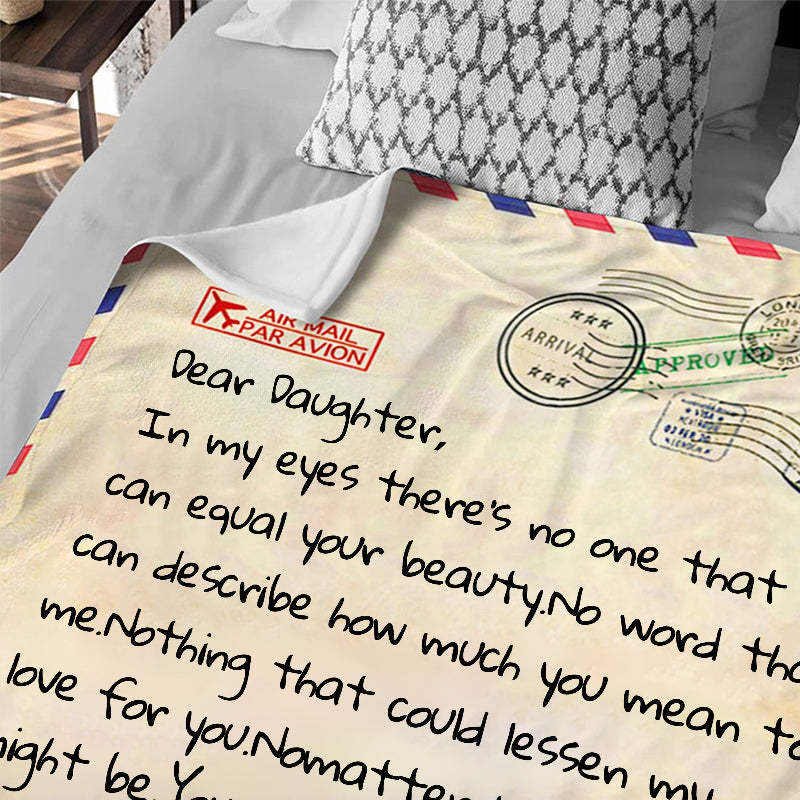 AIR MAIL
PAR AVION
ARRIVAL
APPROVED
VISA
Dear Daughter,
In my eyes there's no one that
can equal your beauty.No word
can describe how much you mean to
me.Nothing that could lessen my
love for you.Nomatter
be.